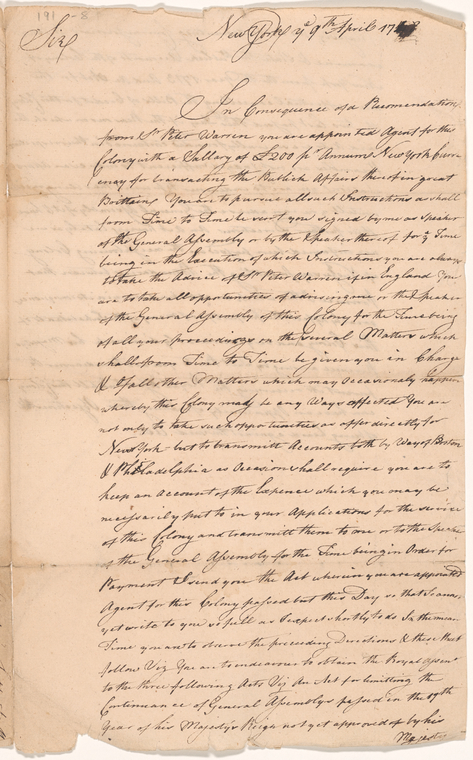 191 -8
Sir
New York ye 9th April 17
In Consequence of a Recomendation
from Sr Peter Warren you are appointed Agent for this
Colony with a Sallary of £200 pr Annum New York Curr
ency for transacting the Publick Affairs thereof in great
Brittain You are to pursue all such Instructions as shall
from Time to Time be sent you signed by me as Speaker
of the General Assembly or by the Speaker thereof for ye Time
being in the Execution of which Instructions you are always
to take the Advice of Sr Peter Warren if in England You
are to take all opportunities of advising me or the Speaker
of the General Assembly of this Colony for the Time being
of all your proceedings on the General Matters which
shall from Time to Time be given you in Charge
& of all other Matters which may Occasionaly happen
whereby this Colony may be any Ways affected You are
not only to take such oppertunities as offer directly for
New York but to transmitt Accounts both by Way of Boston
& Philadelphia as Occasion shall require you are to
keep an Account of the Expence which you may be
necessarily put to in your Applications for the service
of this Colony and transmitt them to me or to the Speaker
of the General Assembly for the Time being in Order for
Payment I send you the Act wherein you are appointed
Agent for this Colony passed but this Day so that I cannot
yet write to you so full as I expect shortly to do In the mean
Time you are to observe the preceeding Directions & these that
follow Viz You are to endeavour to obtain the Royal Assent
to the three following Acts Viz An Act for limitting the
Continuance of General Assemblys passed in the 17th
Year of his Majestys Reign not yet approved of by his
Majesty